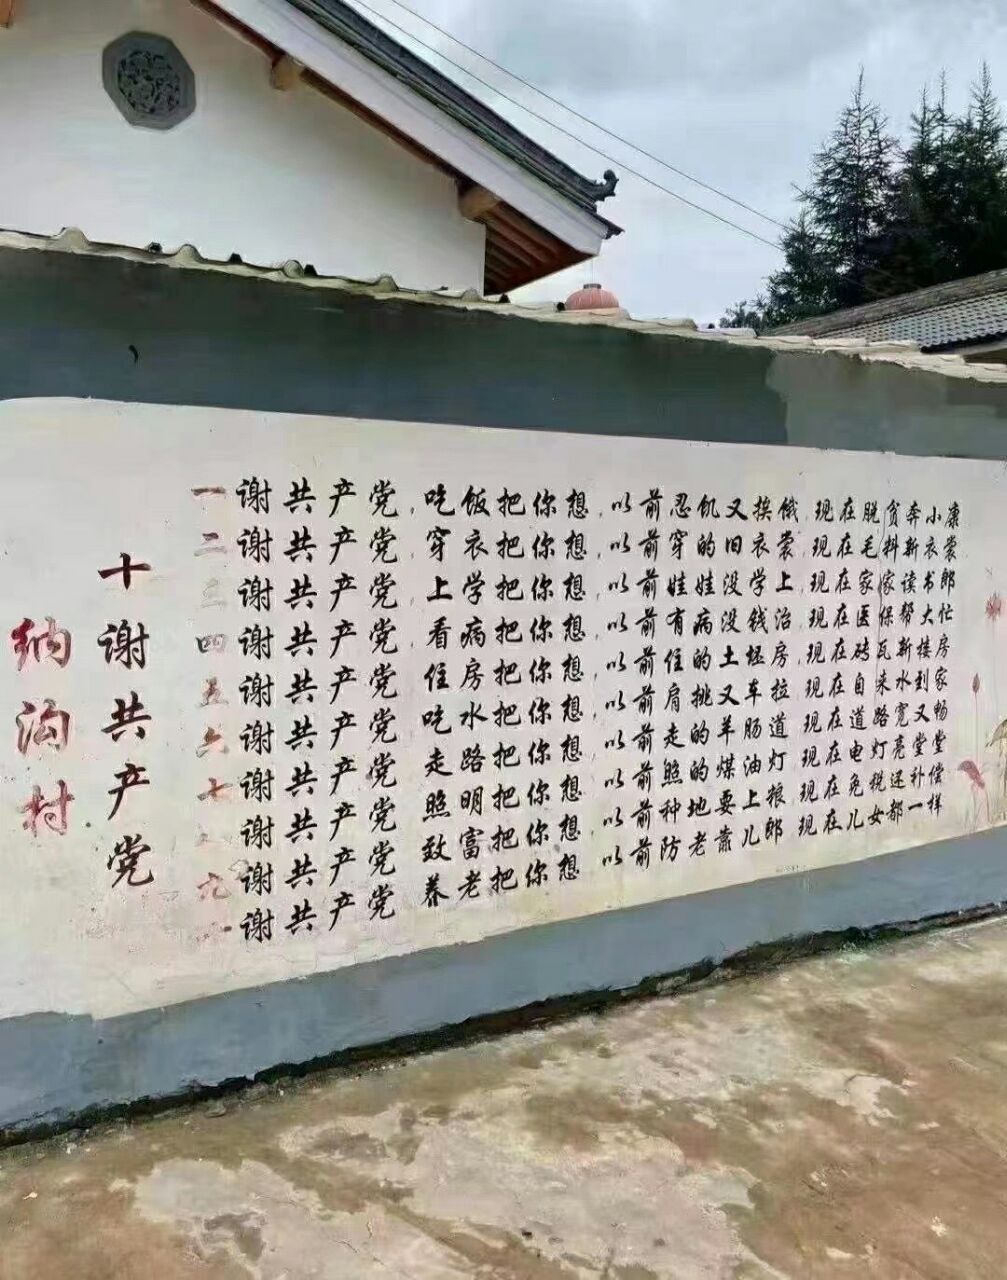 纳沟村
十谢共产党
一谢共产党,吃饭把你想,以前忍饥又挨饿,现在脱贫奔小康
二谢共产党,穿衣把你想,以前穿的旧衣裳,现在毛料新衣裳
三谢共产党,上学把你想,以前娃娃没学上,现在家家读书郎
四谢共产党,看病把你想,以前有病没钱治,现在医保帮大忙
五谢共产党,住房把你想,以前住的土坯房,现在砖瓦新楼房
六谢共产党,吃水把你想,以前肩挑又车拉,现在自来水到家
七谢共产党,走路把你想,以前走的羊肠道,现在道路宽又畅
谢共产党,照明把你想,以前照的煤油灯,现在电灯亮堂堂
谢共产党,致富把你想,以前种地要上粮,现在免税还补偿
谢共产党,养老把你想,以前防老靠儿郎,现在儿女都一样